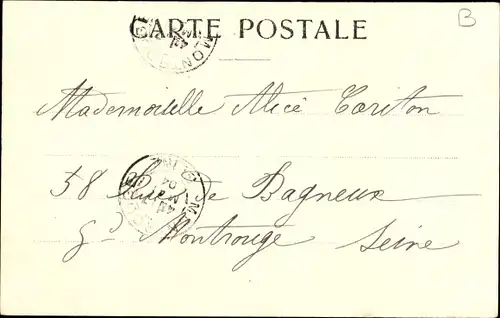 B
CARTE POSTALE
Mademoiselle Alice Cariton
58 Rue de Bagneux
Gd Montrouge Seine